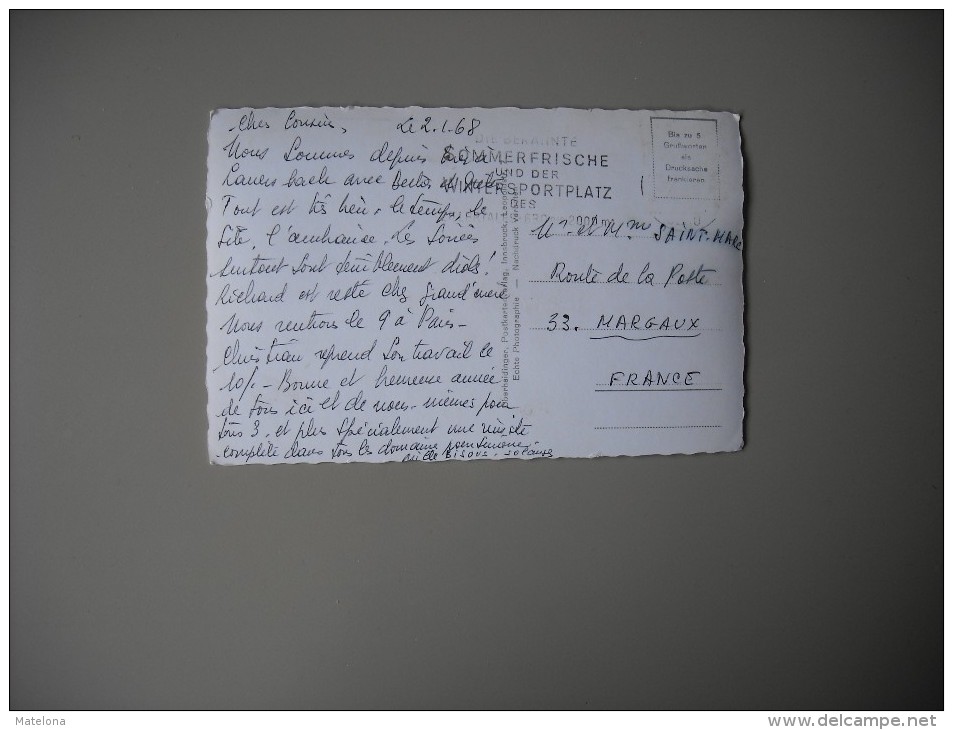 Chers Cousins, Le 2.1.68
Nous Sommes depuis
Lanersbach avec
Tout est très bien. le temps, le
site, l'ambiance. Les Soirées
surtout sont terriblement
Richard est resté chez grand'mère
Nous rentrons le 9 à Paris -
Christian reprend son travail le
10/. - Bonne et heureuse année
de tous ici et de nous-mêmes pour
tous 3. et plus spécialement une réussite
complète dans tous les domaines pour Simone.
Mille Bisous. Solange
DIE BEKANNTE
SOMMERFRISCHE
UND DER
WINTERSPORTPLATZ
DES
Postkartenverlag, Innsbruck,
Echte Photographie — Nachdruck
Bis zu 5
Grußworten
als
Drucksache
frankieren
Mr et Mme SAINT-MARC
Route de la Poste
33. MARGAUX
FRANCE
Matelona
www.delcampe.net